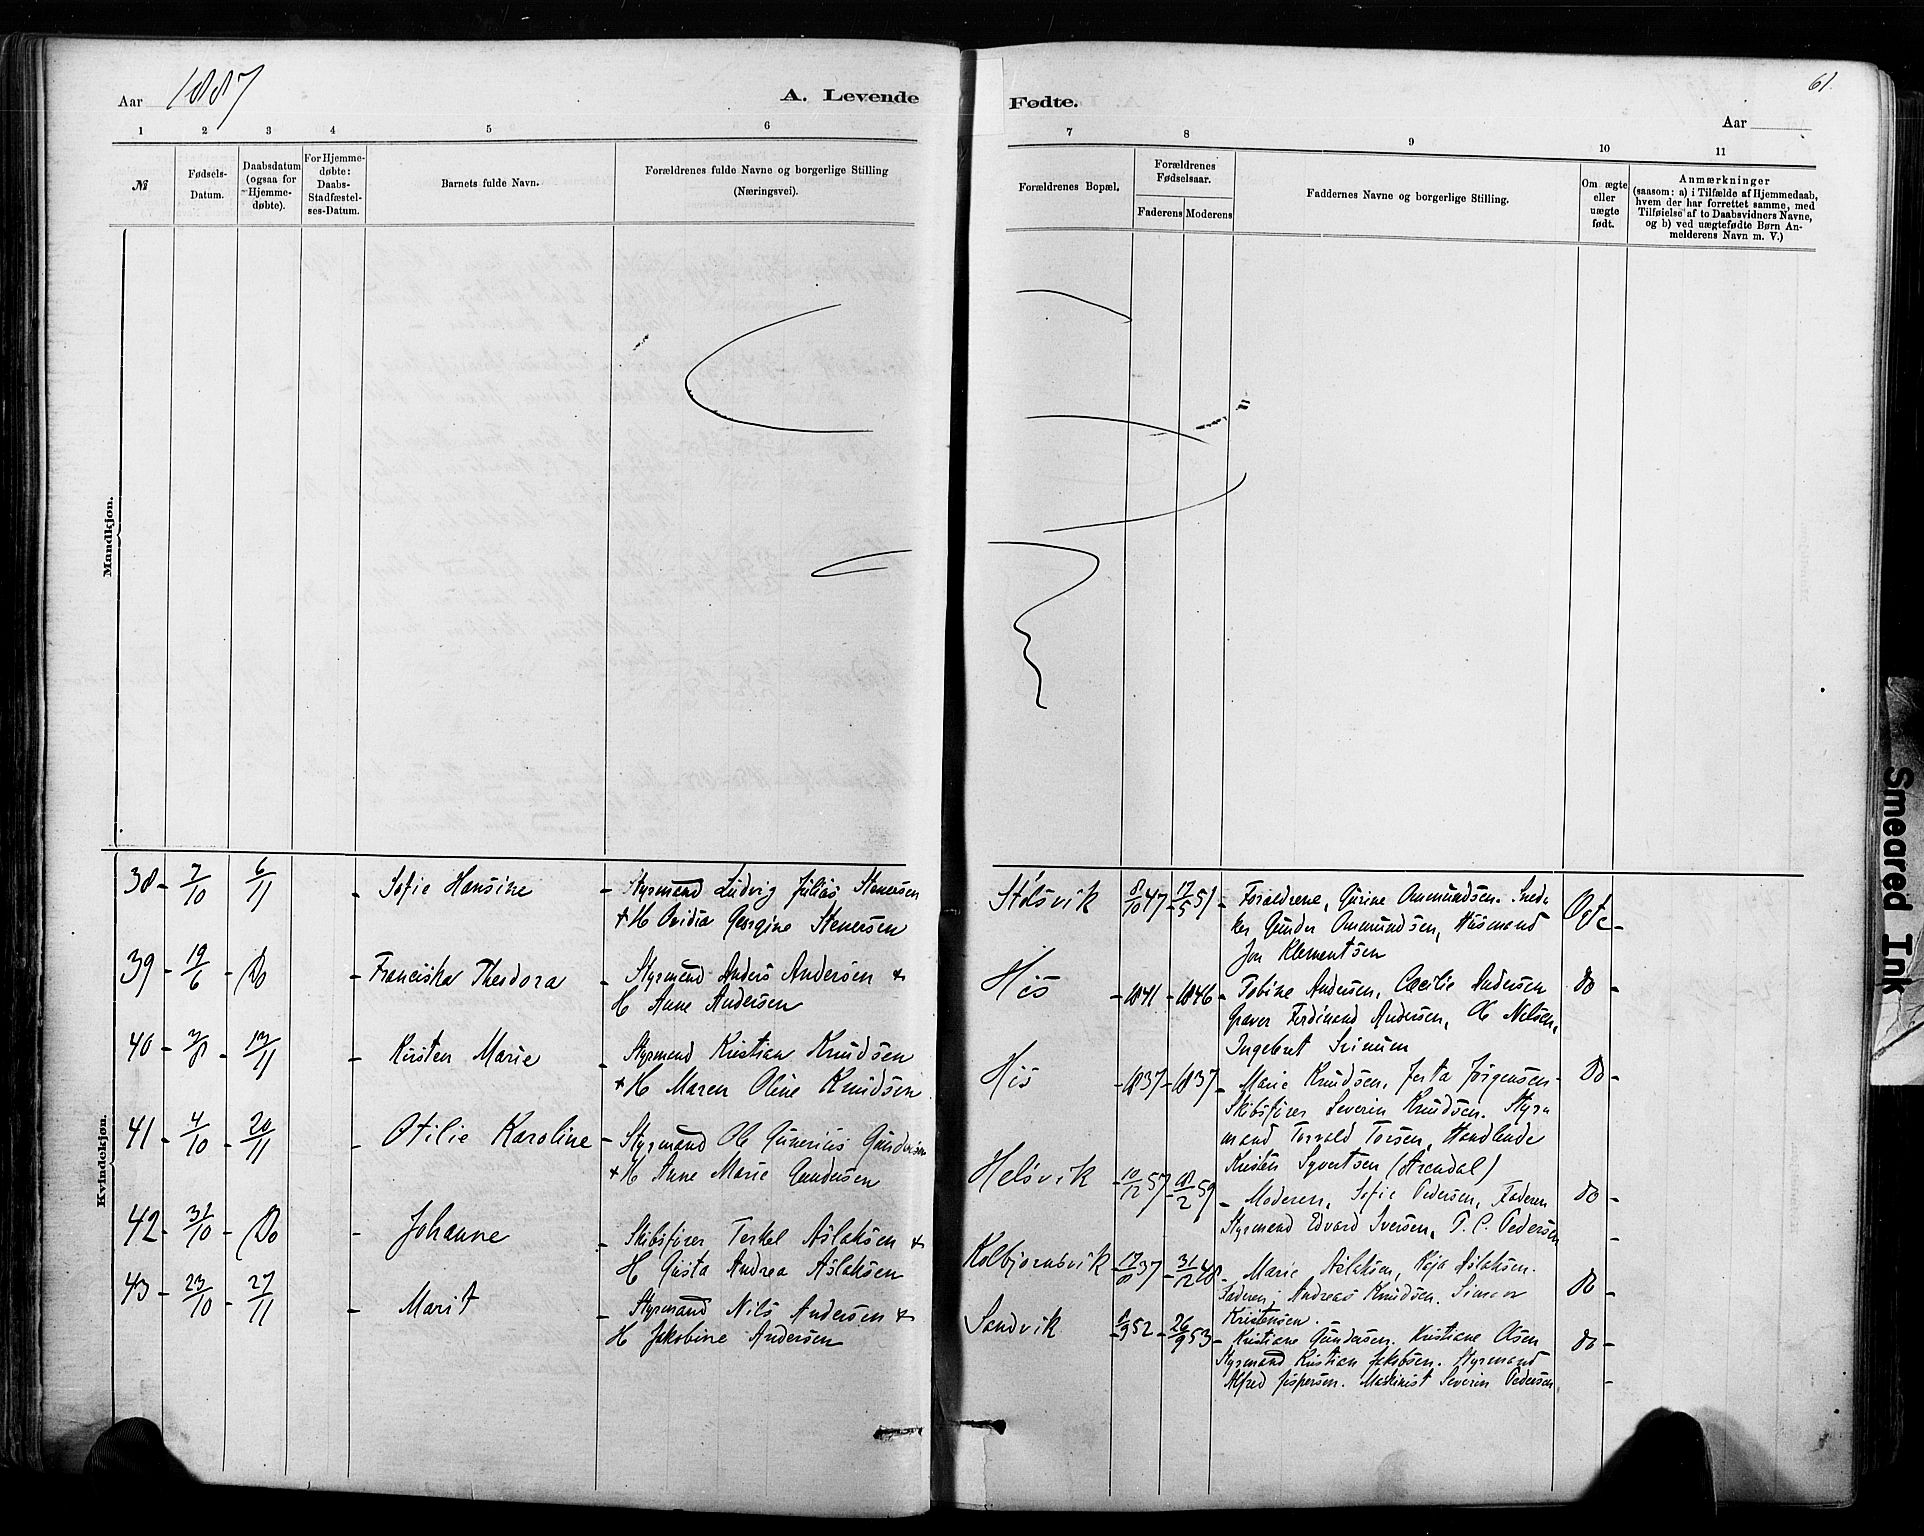 Aar 1887
A. Levende
Fødte.
61.
Aar
1 2 3 4 5 6 7 8 9 10 11
№
Fødsels-
Datum.
Daabsdatum
(ogsaa for
Hjemme-
døbte).
For Hjemme-
døbte:
Daabs-
Stadfæstel-
ses-Datum.
Barnets fulde Navn.
Forældrenes fulde Navne og borgerlige Stilling
(Næringsvei).
Forældrenes Bopæl.
Forældrenes
Fødselsaar.
Faderens Moderens
Faddernes Navne og borgerlige Stilling.
Om ægte
eller
uægte
født.
Anmærkninger
(saasom: a) i Tilfælde af Hjemmedaab,
hvem der har forrettet samme, med
Tilføielse af to Daabsvidners Navne,
og b) ved uægtefødte Børn An-
melderens Navn m. V.)
Mandkjøn.
Kvindekjøn.
38 - 7/10 6/11 - Sofie Hansine - Styrmand Ludvig Julius Stenersen
+ H Ovidia Georgine Stenersen
Stølsvik 8/10 47 - 17/5 51 - Forældrene, Gurine Ommundsen. Sned-
ker Gunder Ommundsen, Husmand
Jon Klementsen
Ægte -
39 - 19/6 - Do - Franciska Theodora - Styrmand Anders Andersen +
H Anne Andersen
His - 1841 - 1846 - Tobine Andersen, Cæcilie Andersen
Graver Ferdinand Andersen, Ole Nelsen,
Ingebret
Do -
40 - 3/8 - 13/11 - Kirsten Marie - Styrmand Kristian Knudsen
+ H Maren Oline Knudsen
His - 1837 - 1837 - Marie Knudsen, Jørgensen
Skibsfører Severin Knudsen. Styr-
mand Torvald Torsen, Handlende
Kristen Syvertsen (Arendal)
Do -
41 - 4/10 - 20/11 - Otilie Karoline - Styrmand Ole Gundersen
+ H Anne Marie Gundersen
Helsvik - 10/12 57 - 18/2 59 - Moderen, Sofie Pedersen, Faderen
Styrmand Edvard Iversen, P. C. Pedersen
Do -
42 - 31/10 - Do - Johanne - Skibsfører Terkel Aslaksen +
H Gusta Andrea Aslaksen
Kolbjørnsvik - 19/8 37 - 31/12 48 - Marie Aslaksen, Aslaksen.
Faderen, Andreas Knudsen. Simon
Kristensen.
Do -
43 - 23/10 - 27/11 - Marit - Styrmand Nils Andersen +
H Jakobine Andersen
Sandvik - 6/9 52 - 26/9 53 - Kristiane Gundersen. Kristiane Olsen
Styrmand Kristian Jakobsen. Styrmand
Alfred Jespersen. Maskinist Severin Pedersen
Do -
Smeared Ink